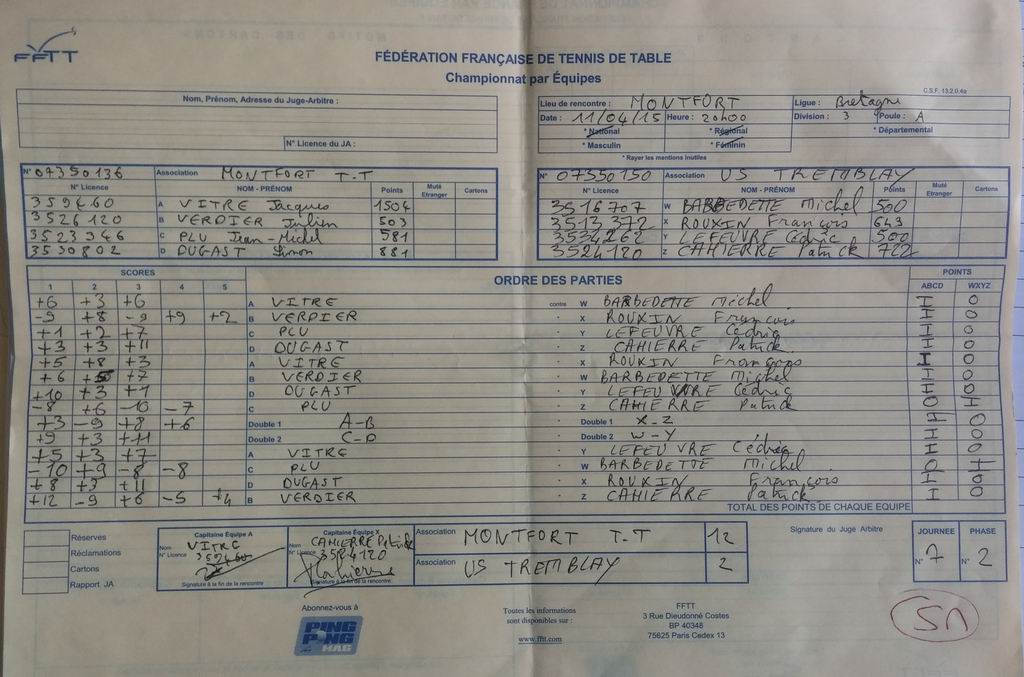 FFTT
FÉDÉRATION FRANÇAISE DE TENNIS DE TABLE
Championnat par Équipes
C.S.F. 13.2.0.4a
Nom, Prénom, Adresse du Juge-Arbitre :
N° Licence du JA :
Lieu de rencontre : MONTFORT Ligue : Bretagne
Date : 11/04/15 Heure : 20h00 Division : 3 Poule : A
* National * Régional * Départemental
* Masculin * Féminin
* Rayer les mentions inutiles
N° 07350136 Association MONTFORT T.T
N° Licence NOM - PRÉNOM Points Muté Etranger Cartons
359460 A VITRE Jacques 1504
3526120 B VERDIER Julien 503
3523946 C PLU Jean-Michel 581
3530802 D DUGAST Simon 881
N° 07350150 Association US TREMBLAY
N° Licence NOM - PRÉNOM Points Muté Etranger Cartons
3516707 W BARBEDETTE Michel 500
3513372 X ROUXIN François 643
3534262 Y LEFEUVRE Cédric 500
3524120 Z CAHIERRE Patrick 722
SCORES ORDRE DES PARTIES POINTS
1 2 3 4 5 ABCD WXYZ
+6 +3 +6 A VITRE contre W BARBEDETTE Michel I 0
-9 +8 -9 +9 +2 B VERDIER X ROUXIN François I 0
+1 +2 +7 C PLU Y LEFEUVRE Cédric I 0
+3 +3 +11 D DUGAST Z CAHIERRE Patrick I 0
+5 +8 +3 A VITRE X ROUXIN François I 0
+6 +5 +7 B VERDIER W BARBEDETTE Michel I 0
+10 +3 +1 D DUGAST Y LEFEUVRE Cédric I 0
-8 +6 -10 -7 C PLU Z CAHIERRE Patrick 0 I
+3 -9 +8 +6 Double 1 A-B Double 1 X-Z I 0
+9 +3 +11 Double 2 C-D Double 2 W-Y I 0
+5 +3 +7 A VITRE Y LEFEUVRE Cédric I 0
-10 +9 -8 -8 C PLU W BARBEDETTE Michel 0 I
+8 +3 +11 D DUGAST X ROUXIN François I 0
+12 -9 +6 -5 +4 B VERDIER Z CAHIERRE Patrick I 0
TOTAL DES POINTS DE CHAQUE EQUIPE
Réserves
Réclamations
Cartons
Rapport JA
Capitaine Équipe A
Nom VITRE
N° Licence 359460
Signature à la fin de la rencontre
Capitaine Équipe X
Nom CAHIERRE Patrick
N° Licence 3524120
Signature à la fin de la rencontre
Association MONTFORT T.T 12
Association US TREMBLAY 2
Signature du Juge Arbitre
JOURNEE PHASE
N° 7 N° 2
Abonnez-vous à
PING PONG MAG
Toutes les informations
sont disponibles sur :
www.fftt.com
FFTT
3 Rue Dieudonné Costes
BP 40348
75625 Paris Cedex 13